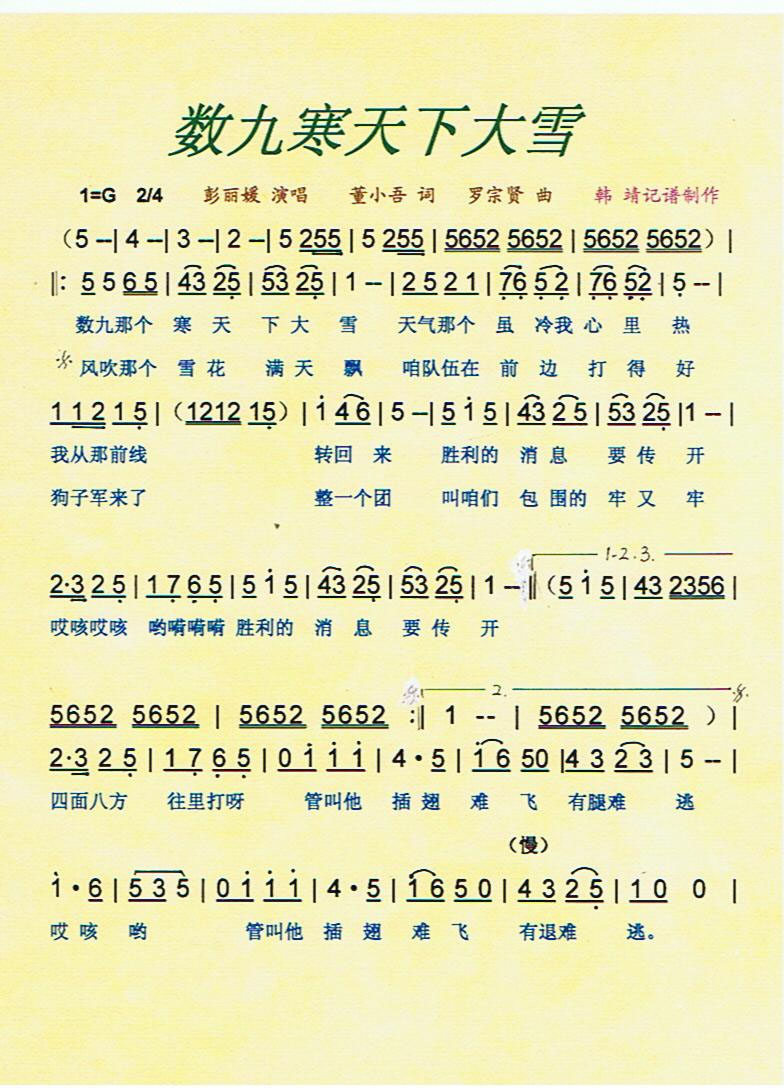 数九寒天下大雪
1=G 2/4 彭丽媛 演唱 董小吾 词 罗宗贤 曲 韩 靖记谱制作
（5 --| 4 --| 3 --| 2 --| 5 255 | 5 255 | 5652 5652 | 5652 5652）|
‖: 5 5 6 5 | 43 25 | 53 25 | 1 -- | 2 5 2 1 | 76 5 2 | 76 52 | 5 -- |
数九那个 寒 天 下 大 雪 天气那个 虽 冷我 心 里 热
风吹那个 雪 花 满 天 飘 咱队伍在 前 边 打 得 好
1 12 1 5 |（1212 15）| i 4 6 | 5 -- | 5 i 5 | 43 2 5 | 53 25 |1 -- |
我从那前线 转回 来 胜利的 消 息 要 传 开
狗子军来了 整一个团 叫咱们 包 围的 牢 又 牢
1-2.3.
2·3 2 5 | 1 7 6 5 | 5 i 5 | 43 25 | 53 25 | 1 --‖（5 i 5 | 43 2356 |
哎咳哎咳 哟嗬嗬嗬 胜利的 消 息 要 传 开
2.
5652 5652 | 5652 5652 :‖ 1 -- | 5652 5652 ）|
2·3 2 5 | 1 7 6 5 | 0 i i i | 4 · 5 | i 6 50 |4 3 2 3 | 5 -- |
四面八方 往里打呀 管叫他 插 翅 难 飞 有腿难 逃
（慢）
i · 6 | 5 3 5 | 0 i i i | 4 · 5 | i 6 5 0 | 4 3 2 5 | 1 0 0 |
哎 咳 哟 管叫他 插 翅 难 飞 有退难 逃。